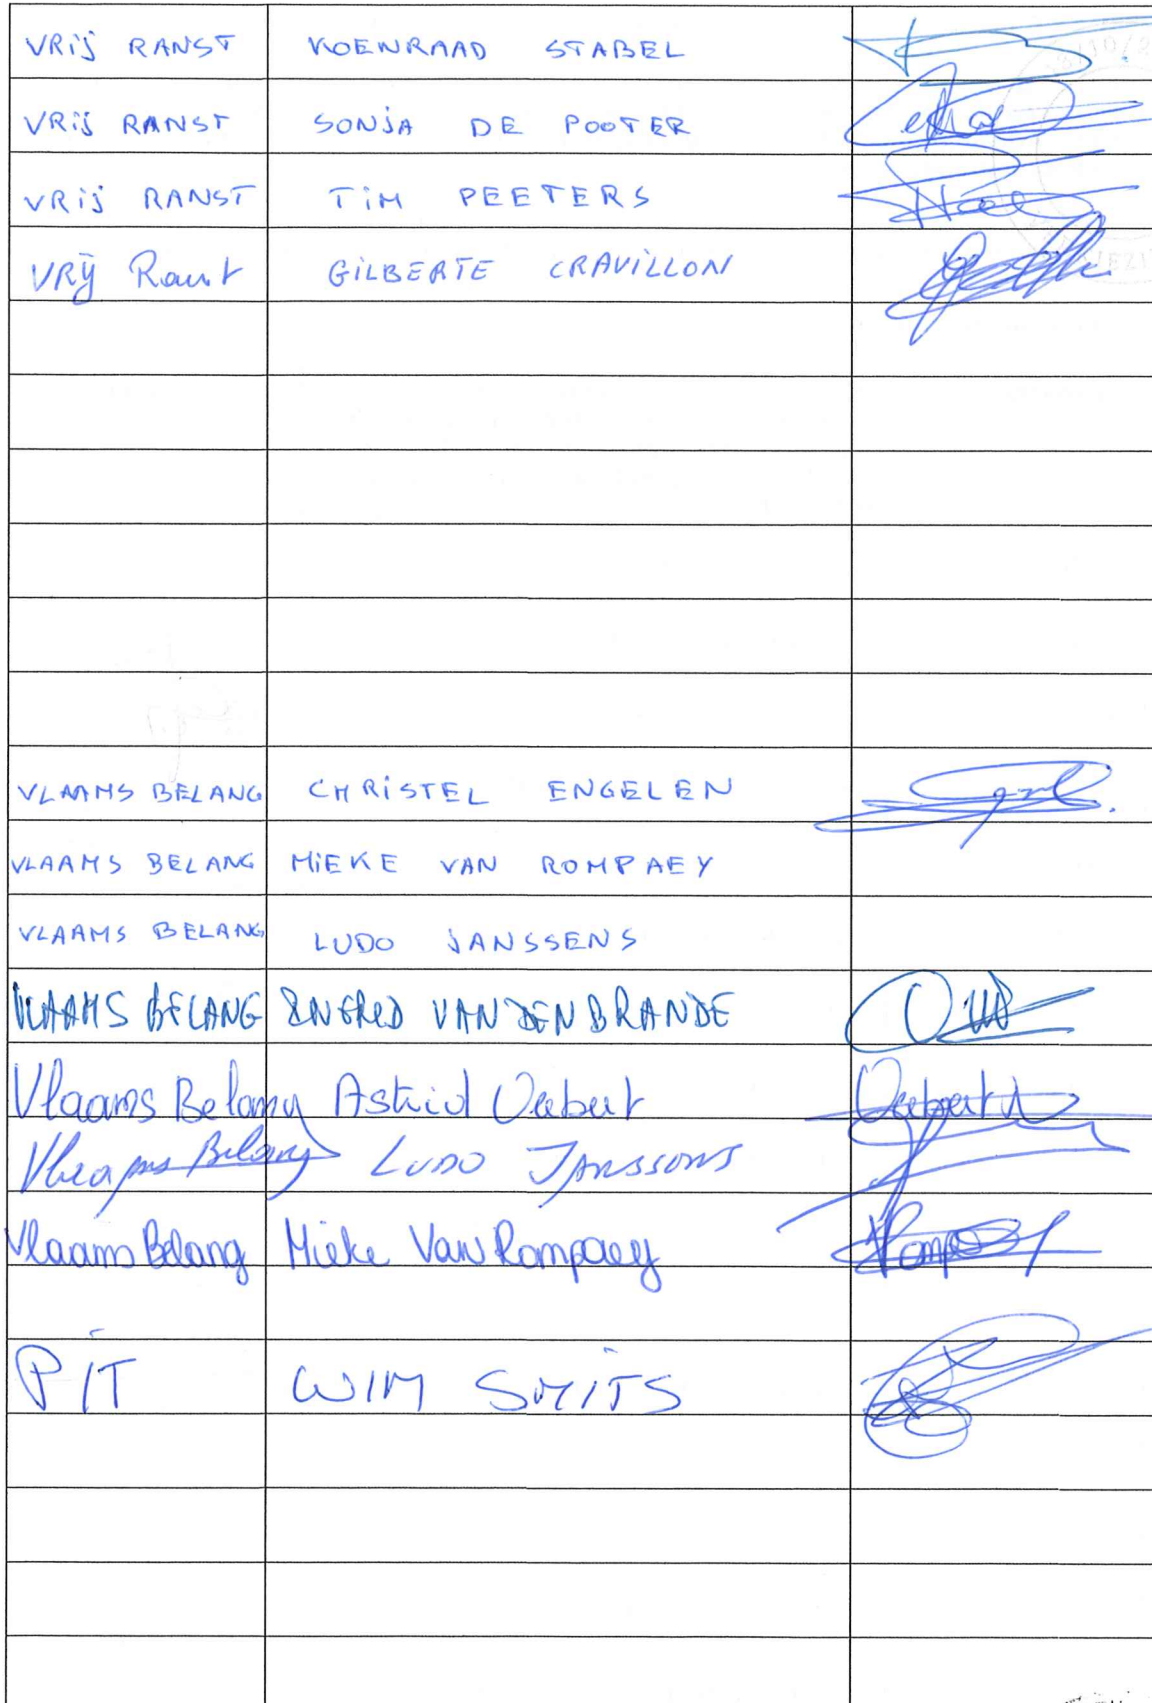 VRIJ RANST KOENRAAD STABEL
VRIJ RANST SONJA DE POOTER
VRIJ RANST TIM PEETERS
VRIJ Ranst GILBERTE CRAVILLON
VLAAMS BELANG CHRISTEL ENGELEN
VLAAMS BELANG MIEKE VAN ROMPAEY
VLAAMS BELANG LUDO JANSSENS
VLAAMS BELANG INGRID VAN DEN BRANDE
Vlaams Belang Astrid
Vlaams Belang LUDO JANSSENS
Vlaams Belang Mieke Van Rompaey
PIT WIM SMITS